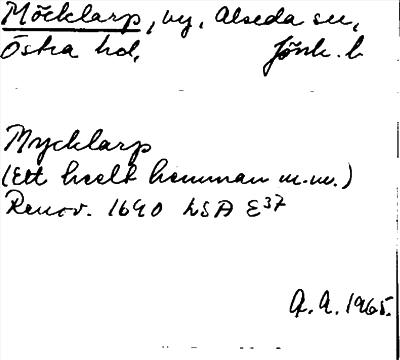 Möcklarp, by, Alseda sn,
Östra hd, Jönk. l.
Mycklarp
(Ett heelt hemman m.m.)
Renov. 1640 LSA E37
A. A. 1965.